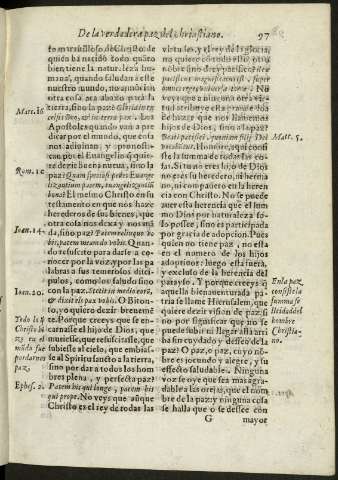 De la verdadera paz del christiano. 97
to marauilloso de Christo: de
quiẽ ha nacido todo quãto
bien tiene la natural eza hu
mana, quando saludara este
nuestro sitio, o quando la
otra vez abaxo para la
tierra, da paz al cielo
celsis Deo, & in terra pax. Los
Apostoles quando van a pre
dicar por el mundo, que cosa
nos
cian por el Euangelio si quie
re dezir buena nueua, sino la
paz? Quàm speciosi pedes Euange
lizantium pacem, euangelizantiũ
bona? El mesmo Christo en su
testamento en que nos haze
herederos de sus bienes, que
otra cosa nos dexa y nos mã
da, sino paz? Pacem relinquo vo
bis, pacem meam do vobis. Quan
do resuscito para darse a co
nocer por la voz, y por las pa
labras a sus temerosos disci
pulos, como los saludo sino
con la paz. Stetit in medio eorũ,
& dixit eis pax vobis. O Biton
so, y o quiero dezir brebemẽ
te. Porque creeys que se en
carnasse el hijo de Dios, que
muriesse, que resuscitasse, que
subiesse al cielo, que embias
se al Spiritu sancto a la tierra,
sino por dar a todos los hom
bres plena, y perfecta paz?
Pacem his qui longe, pacem his
qui prope. No veys que aũque
Christo es el rey de todas las
virtudes, y el rey de la gloria,
no quiere
sino de paz?
pacificus magnificatus est, super
omnes reges vniuersæ terræ? No
veys que a ninguna otra vir
tud se le atribuye la heren
cia de que nos llamemos
hijos de Dios, sino a la paz?
Beati pacifici, quoniam filij Dei
vocabuntur. Honor es, aquicons
iste la summa de todas las co
sas. Si tu no eres hijo de Dios
no eres su heredero, ni herma
no, ni compañero en la heren
cia con Christo. No se puede
auer essa herencia que el sum
mo Dios por naturaleza so-
lo possee, sino es participada
por gracia de adopcion. Pues
quien no tiene paz, no esta
en el numero de los hijos
adoptiuos: luego esta fuera,
y excluso de la herencia del
parayso. Y porque creeys que
aquella bienauenturada pa
tria se llame Hierusalem, que
quiere dezir vision de paz, si
no por significar que no se
puede subir ni llegar asta arri
ba sin cuydado y desseo de la
paz? O paz, o paz, cuyo nõ-
bre es jocundo y alegre, y su
effecto saludable. Ninguna
voz se oye que sea mas agra-
dable a las orejas, que el nom
bre de la paz: ninguna cosa
se halla que o se dessee con
G mayor
Matt. 10
Rom. 10
Ioan. 14.
Ioan. 20.
Todo lo q̃
Christo hi
zo y tu
medio fue
por darnos
paz.
Ephes. 2.
Matt. 5.
En la paz
consiste la
summa fe
licidad del
hombre
Christia-
no.